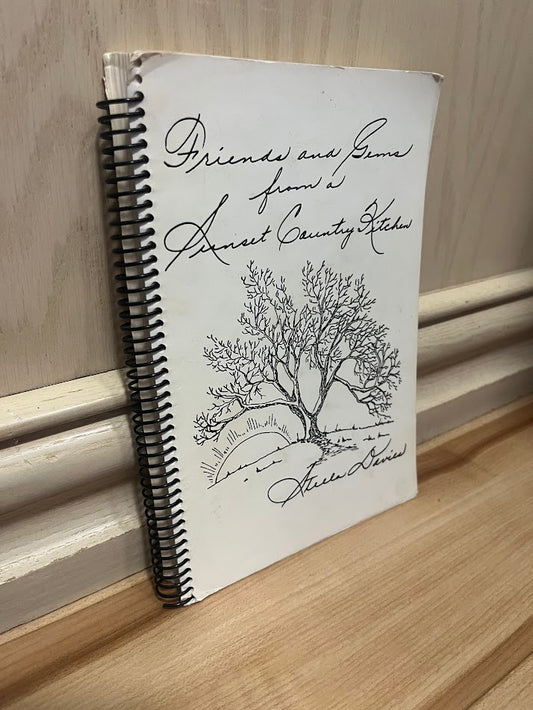 Friends and Gems
from a
Sunset Country Kitchen
Stella Davies